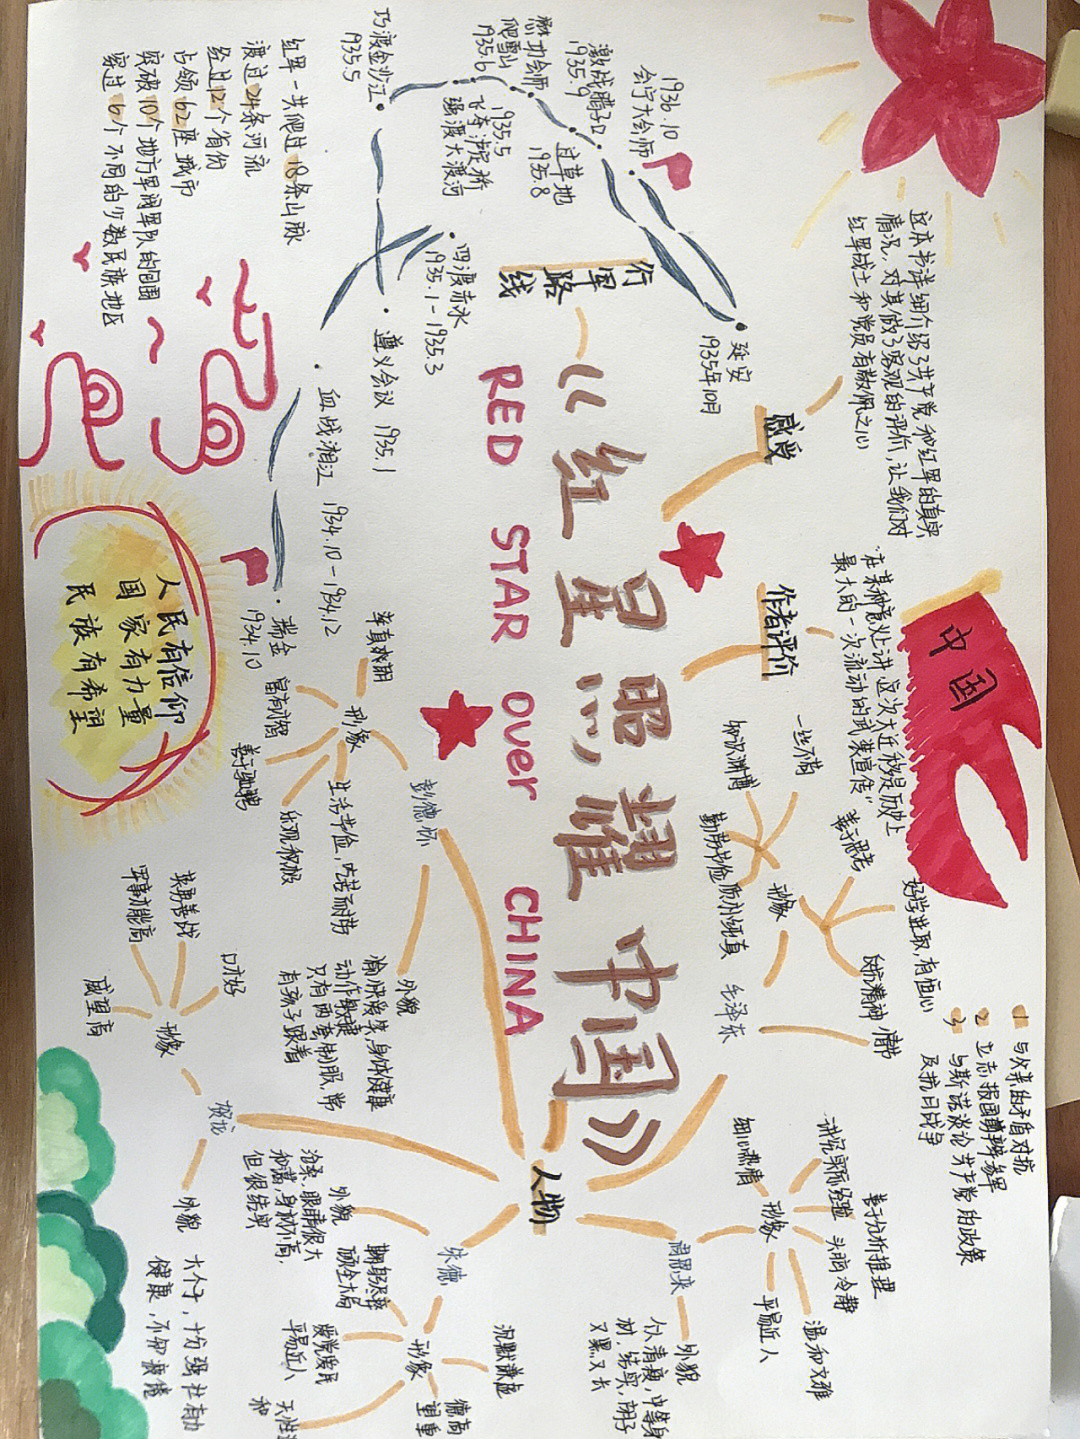 《红星照耀中国》
RED STAR Over CHINA
行军
路线
瑞金
1934.10
血战湘江 1934.10-1934.12
遵义会议 1935.1
四渡赤水
1935.1-1935.3
巧渡金沙江
1935.5
强渡大渡河
飞夺泸定桥
1935.5
爬雪山
1935.6
懋功会师
过草地
1935.8
激战腊子口
1935.9
会宁大会师
1936.10
延安
1935年10月
红军一共爬过18条山脉
渡过24条河流
经过12个省份
占领62座城市
突破10个地方军阀军队的包围
穿过6个不同的少数民族地区
感受
这本书详细介绍了共产党和红军的真实
情况,对其做了客观的评价,让我们对
红军战士和党员有敬佩之心
作者评价
"在某种意义上讲,这次大迁移是历史上
最大的一次流动的武装宣传"
中国
人民有信仰
国家有力量
民族有希望
人物
毛泽东
形象
一丝不苟
知识渊博
勤劳节俭
质朴纯真
善于思考
好学进取,有恒心
反抗精神
情节
1 与父亲的矛盾对抗
2 立志报国
3 与斯诺谈论共产党的政策
及抗日战争
周恩来
形象
细心热情
讲究实际经验
善于分析推理
头脑冷静
温和文雅
平易近人
外貌
个清瘦,中等身
材,结实,胡子
又黑又长
朱德
外貌
沧桑,眼睛很大
和蔼,身材不高,
但很结实
形象
鞠躬尽瘁
顾全大局
爱党爱民
平易近人
沉默谦虚
德高
望重
彭德怀
形象
率真爽朗
善于驰骋
乐观积极
生活节俭,吃苦耐劳
外貌
愉快爱笑,身体健康
动作敏捷
只有两套制服,常
有孩子跟着
贺龙
形象
英勇善战
军事才能高
威望高
口才好
外貌
大个子,十分强壮有力
健康,不知疲倦